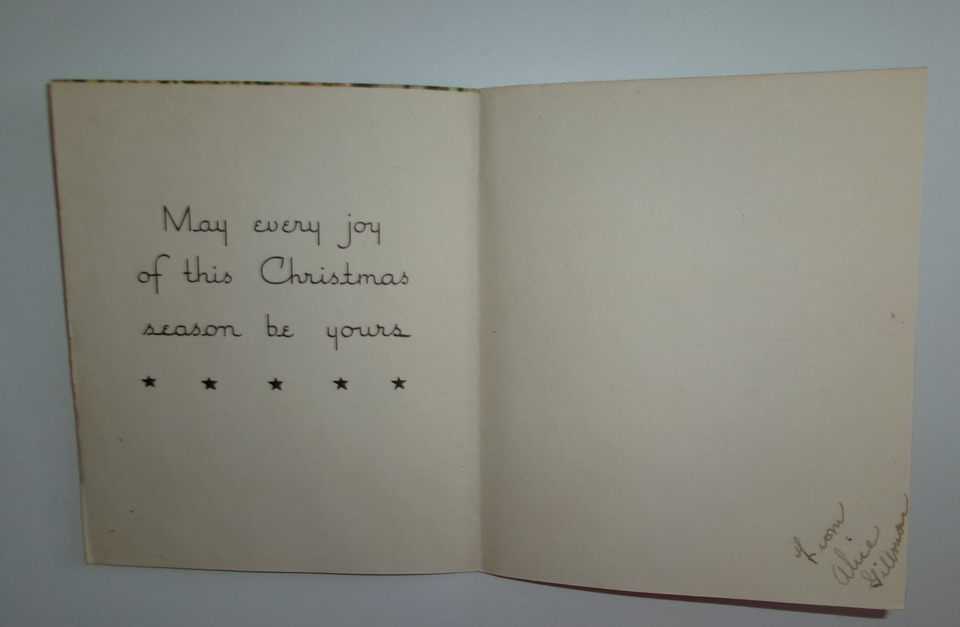 May every joy
of this Christmas
season be yours
★ ★ ★ ★ ★
From
Alice
Gillmore